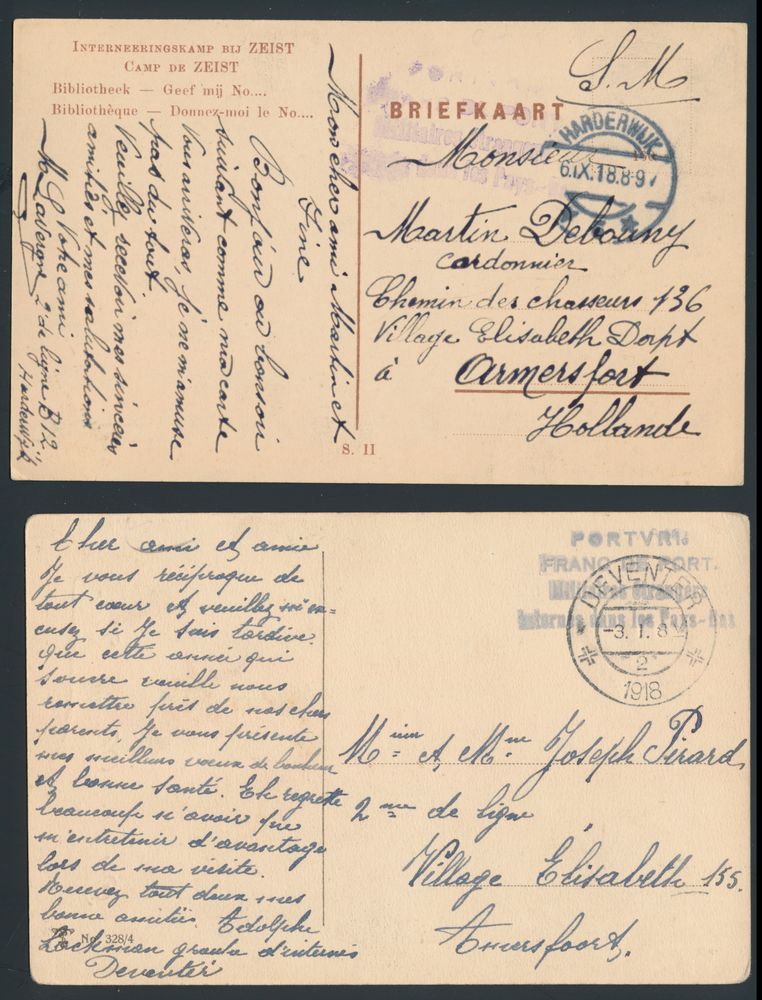 INTERNEERINGSKAMP BIJ ZEIST
CAMP DE ZEIST
Bibliotheek — Geef mij No....
Bibliothèque — Donnez-moi le No....
Mon cher ami Martin et
Fine
Bonjour ou bonsoir
suivant comme ma carte
vous arriveras, je ne m'amuse
pas du tout
Veuillez recevoir mes sincères
amitiés et mes salutations
Votre ami
2 de ligne B 12
Harderwijk
S. M
BRIEFKAART
Militaires étrangers
dans les Pays-Bas
HARDERWIJK
6.IX.18.8-9V
Monsieur
Martin Debouny
Cordonnier
Chemin des chasseurs 136
Village Elisabeth Dorpt
à Armersfort
Hollande
S. II
Cher ami et amie
Je vous réciproque de
tout cœur et veuillez m'ex=
cusez si Je suis tardive.
que cette année qui
s'ouvre veuille nous
remettre près de nos chers
parents. Je vous présente
mes meilleurs vœux de bonheur
et bonne santé. Et regrette
beaucoup n'avoir pu
m'entretenir d'avantage
lors de ma visite.
Recevez tout deux mes
bonne amitiés Adolphe
Lockman groupe d'internés
Deventer
No. 328/4
PORTVRIJ
FRANC DE PORT.
Militaires étrangers
Internés dans les Pays-Bas
DEVENTER
-3.1.8V
2
1918
et Mme Joseph Pirard
2me de ligne
Village Élisabeth 155.
Amersfoort.